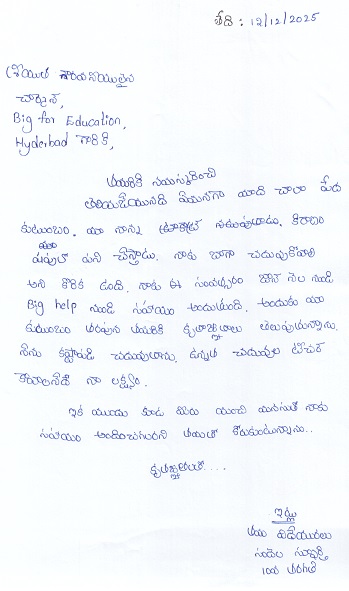 తేది : 12/12/2025
శ్రీయుత గౌరవనీయులైన
చార్మన్,
Big for Education,
Hyderbad గారికి,
తమరికి నమస్కరించి
తెలియజేయునది ఏమనగా మాది చాలా పేద
కుటుంబం. మా నాన్న నడుపుతాడు. కిరాణం
షాపులో పని చేస్తాడు. నాకు బాగా చదువుకోవాలి
అని కోరిక ఉంది. నాకు ఈ సంవత్సరం జూన్ నెల నుండి
Big help నుండి సహాయం అందుతుంది. అందుకు మా
కుటుంబం తరపున తమరికి కృతజ్ఞతలు తెలుపుతున్నాను.
నేను కష్టపడి చదువుతాను. ఉన్నత చదువుల టీచర్
కావాలనేదే నా లక్ష్యం.
ఇక ముందు కూడ మీరు మంచి మనసుతో నాకు
సహాయం అందించగలరని తమతో కోరుకుంటున్నాను..
కృతజ్ఞతలతో....
ఇట్లు
తమ విదేయురలు
స్ఫూర్తి
10వ తరగతి